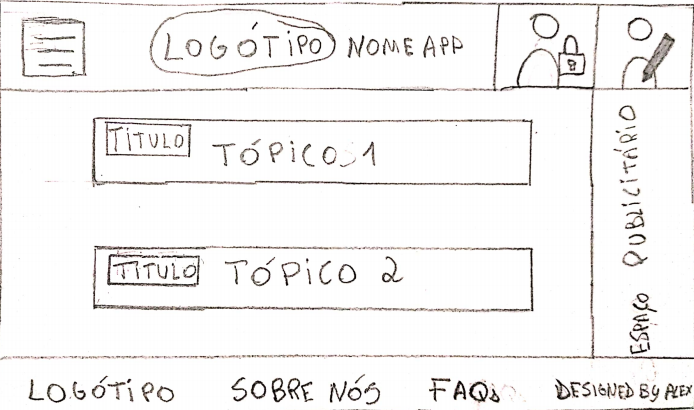 LOGÓTIPO NOME APP
TÍTULO TÓPICO 1
TÍTULO TÓPICO 2
ESPAÇO PUBLICITÁRIO
LOGÓTIPO SOBRE NÓS FAQs DESIGNED BY ALEX